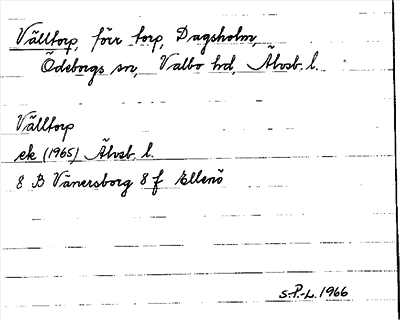 Välltorp, förr torp, Dagsholm,
Ödeborgs sn, Valbo hd, Älvsb. l.
Välltorp
ek (1965) Älvsb. l.
8 B Vänersborg 8 f Ellenö
S.P.-L. 1966